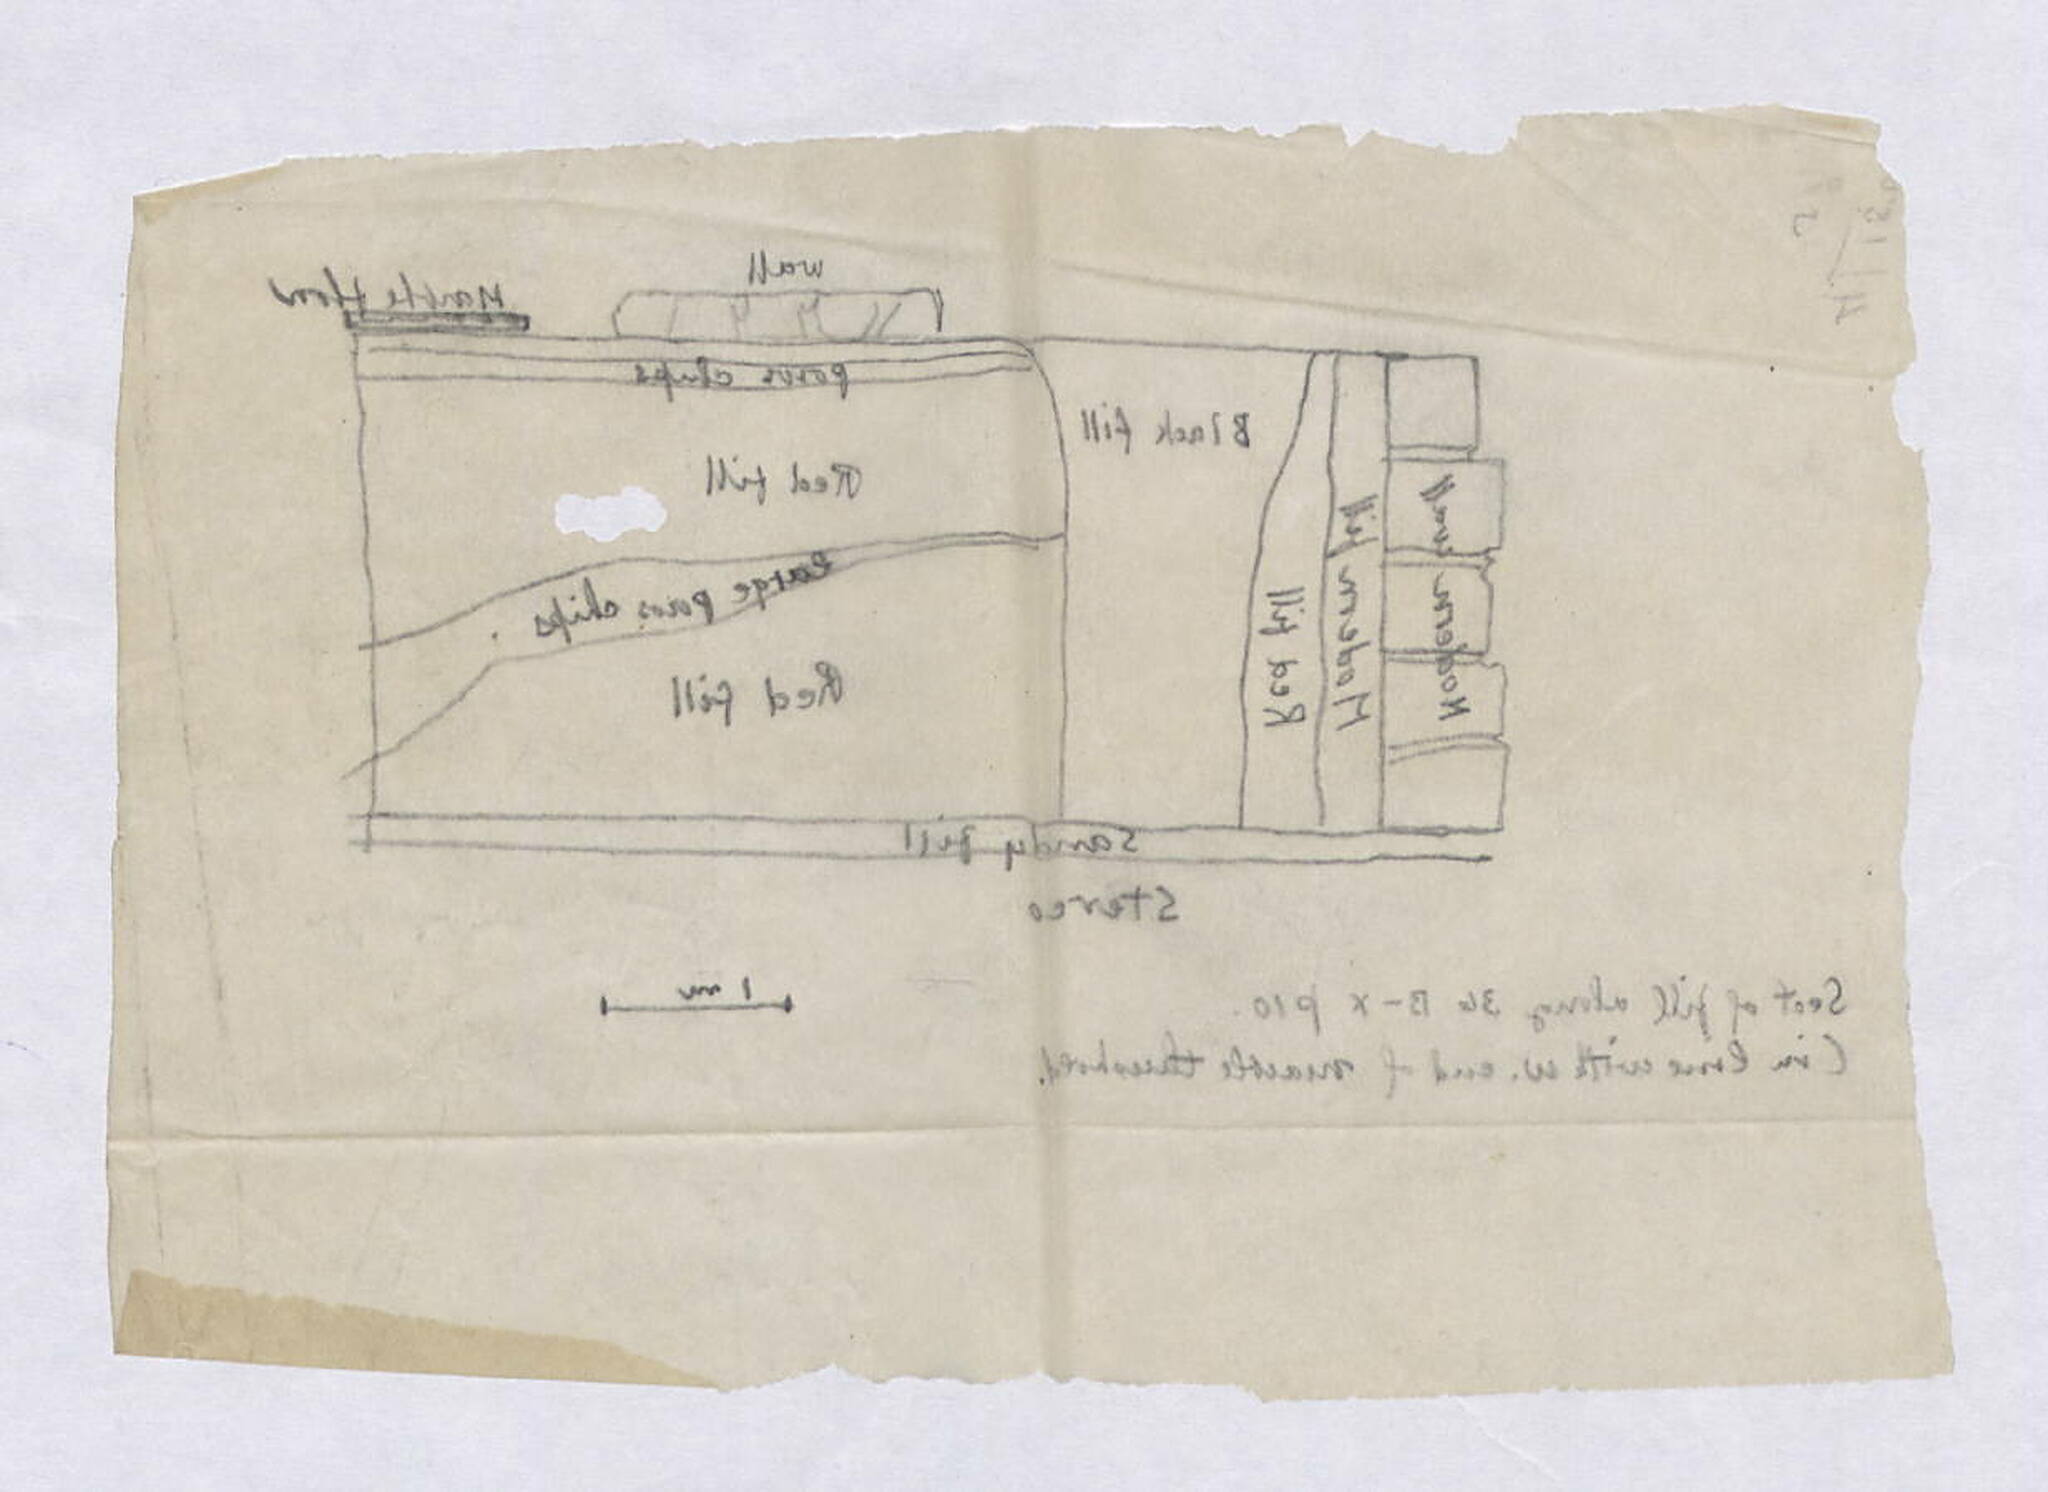 wall
Marble floor
poros chips
Black fill
Red fill
large poros chips
Red fill
Red fill
Modern fill
Modern wall
Sandy fill
Stereo
1 m
Sect of fill along 36 B-X p10.
(in line with w. end of marble threshold.